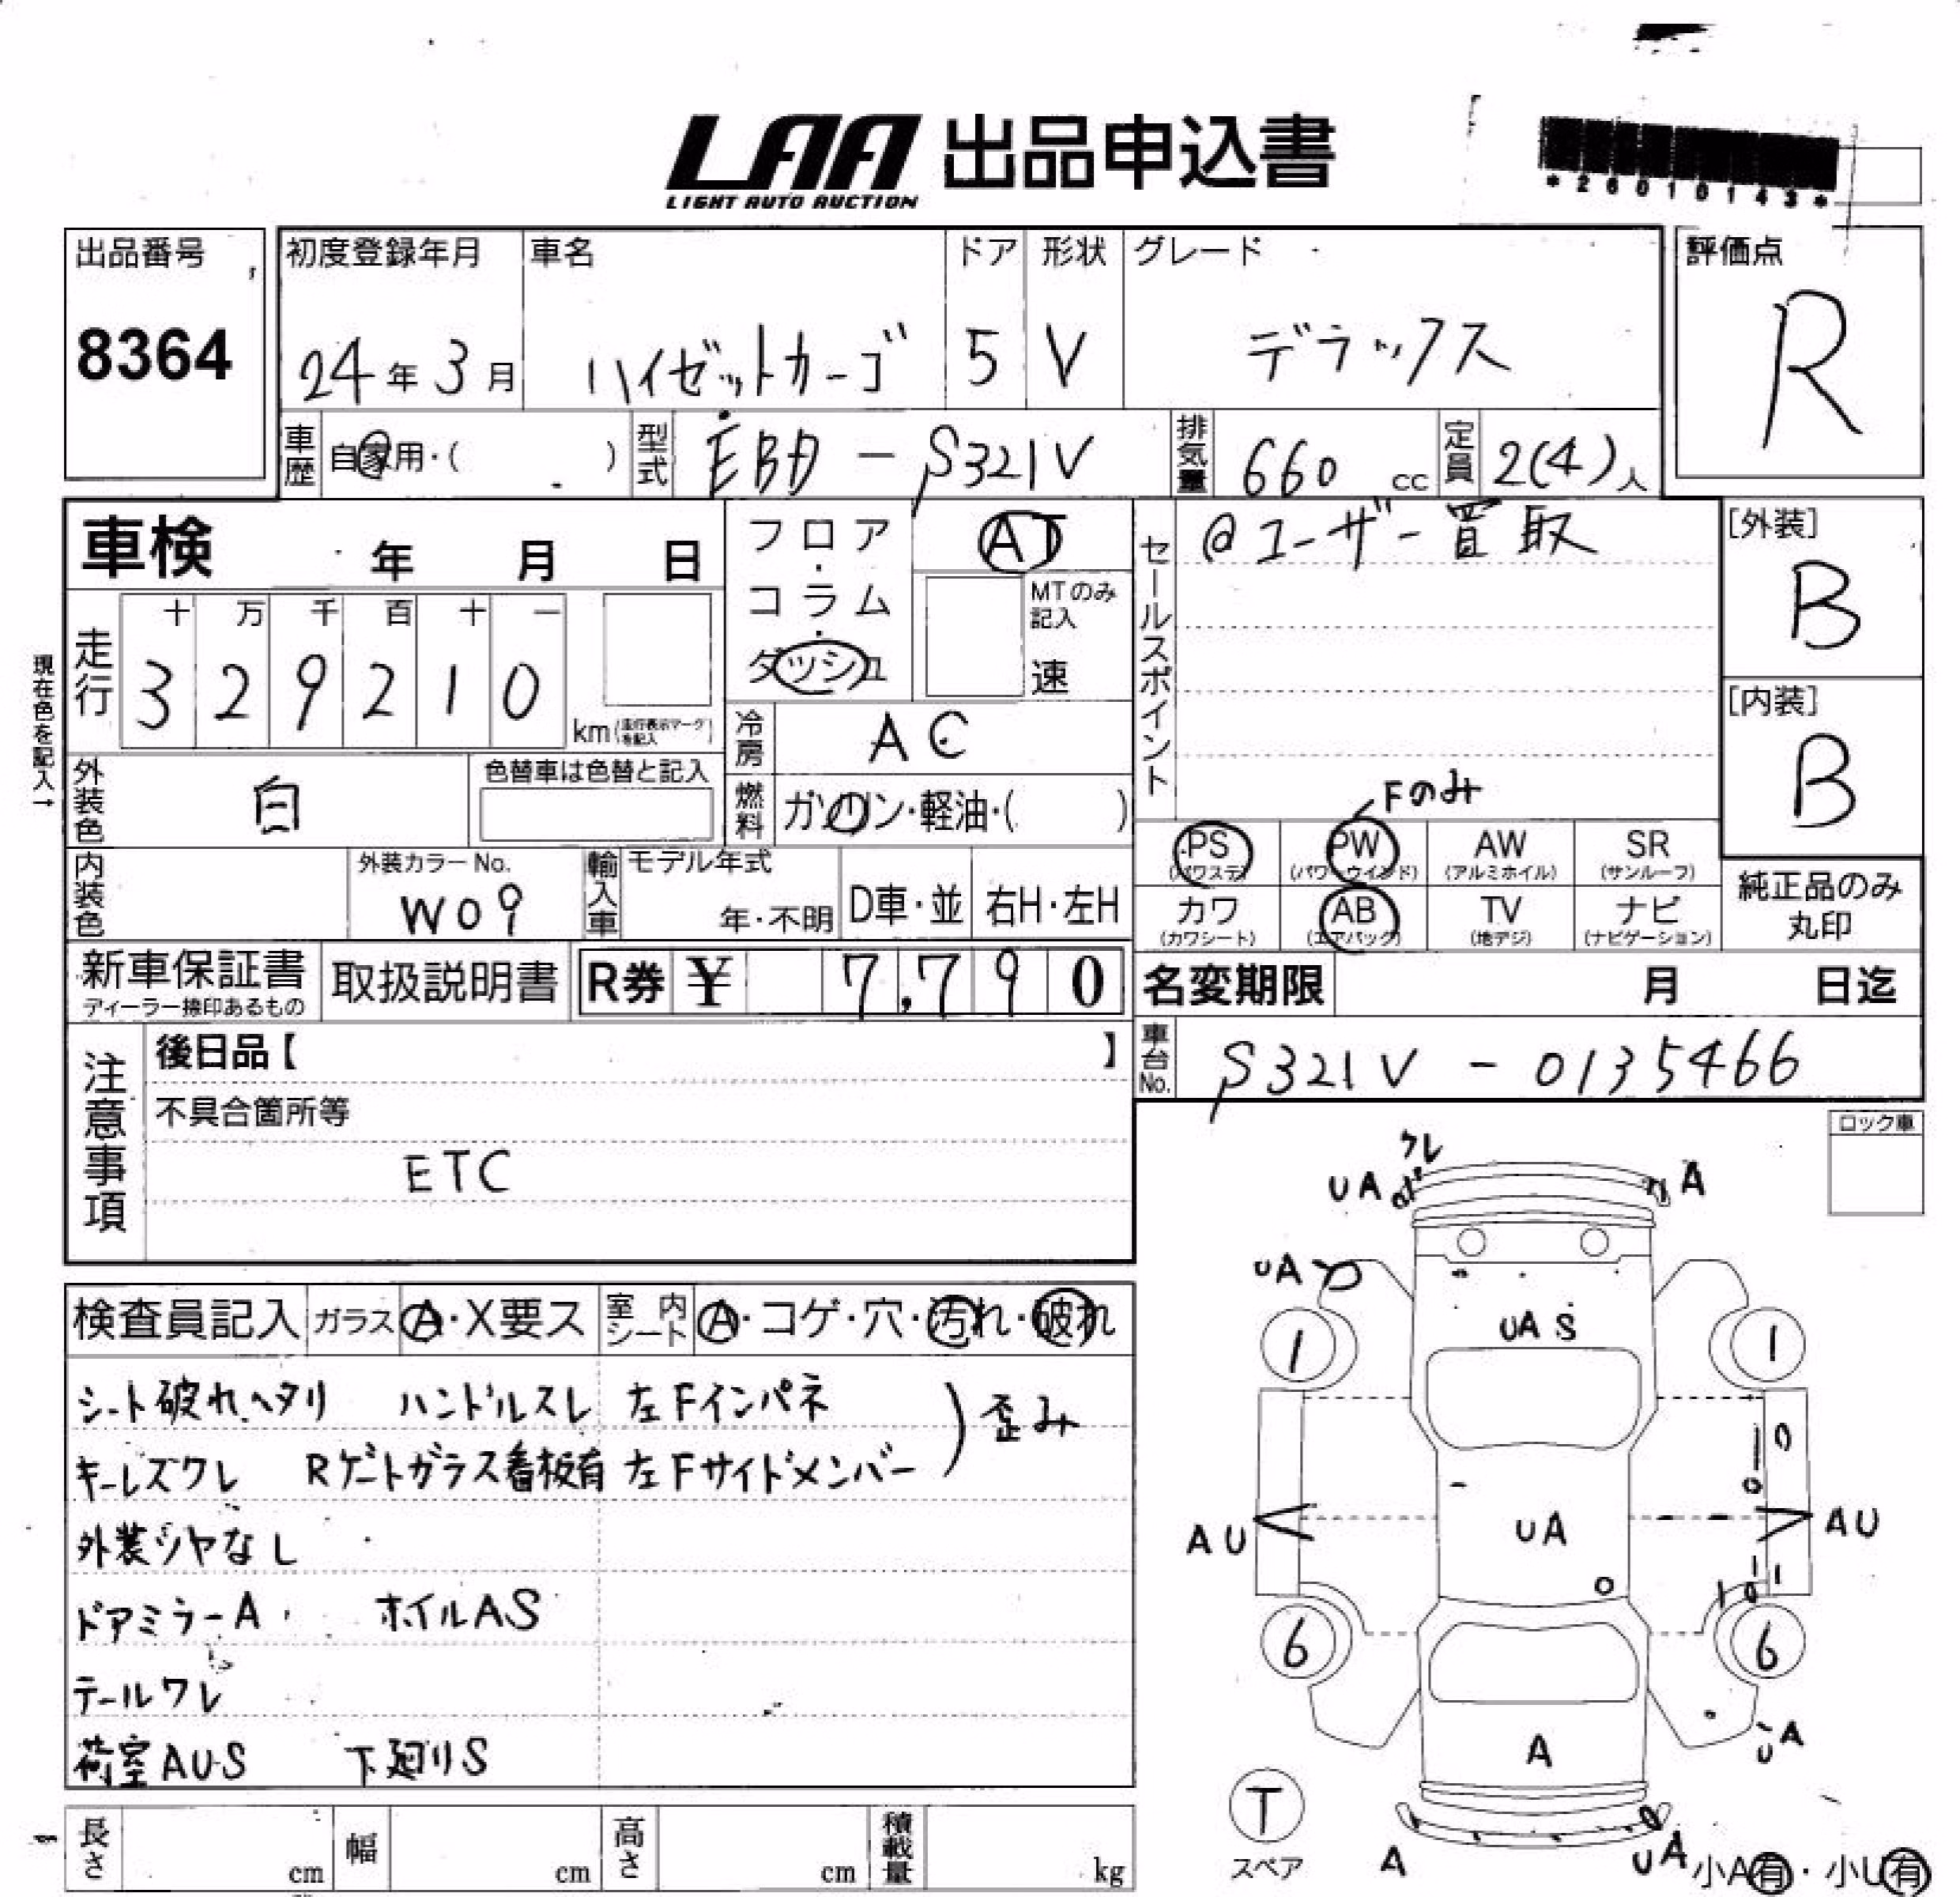 LAA 出品申込書
LIGHT AUTO AUCTION
*26010143*
出品番号
8364
初度登録年月 車名 ドア 形状 グレード
24年3月 ハイゼットカーゴ 5 V デラックス
評価点
R
車歴 自家用・( ) 型式 EBD-S321V 排気量 660 cc 定員 2(4)人
車検 年 月 日
フロア・コラム・ダッシュ
AT
MTのみ記入
速
セールスポイント
@ユーザー買取
[外装]
B
[内装]
B
現在色を記入→
走行
十 万 千 百 十 一
3 2 9 2 1 0
km(走行表示マークを記入)
冷房 AC
外装色 白 色替車は色替と記入
燃料 ガソリン・軽油・( )
Fのみ
PS (パワステ) PW (パワーウインド) AW (アルミホイル) SR (サンルーフ)
カワ (カワシート) AB (エアバック) TV (地デジ) ナビ (ナビゲーション)
純正品のみ丸印
内装色 外装カラーNo. W09
輸入車 モデル年式 年・不明 D車・並 右H・左H
新車保証書 ディーラー捺印あるもの
取扱説明書
R券 ¥ 7,790
名変期限 月 日迄
車台No. S321V-0135466
注意事項
後日品【 】
不具合箇所等
ETC
ロック車
検査員記入 ガラス A・X要ス 室内シート A・コゲ・穴・汚れ・破れ
シート破れ、ヘタリ ハンドルスレ 左Fインパネ
キーレスワレ Rゲートガラス看板有 左Fサイドメンバー ) 歪み
外装ツヤなし
ドアミラーA ホイルAS
テールワレ
荷室AUS 下廻りS
ワレ
UA A
UA
UAS
1 1
AU UA AU
6 6
A UA
T
スペア
A UA
小A有・小U有
長さ cm 幅 cm 高さ cm 積載量 kg